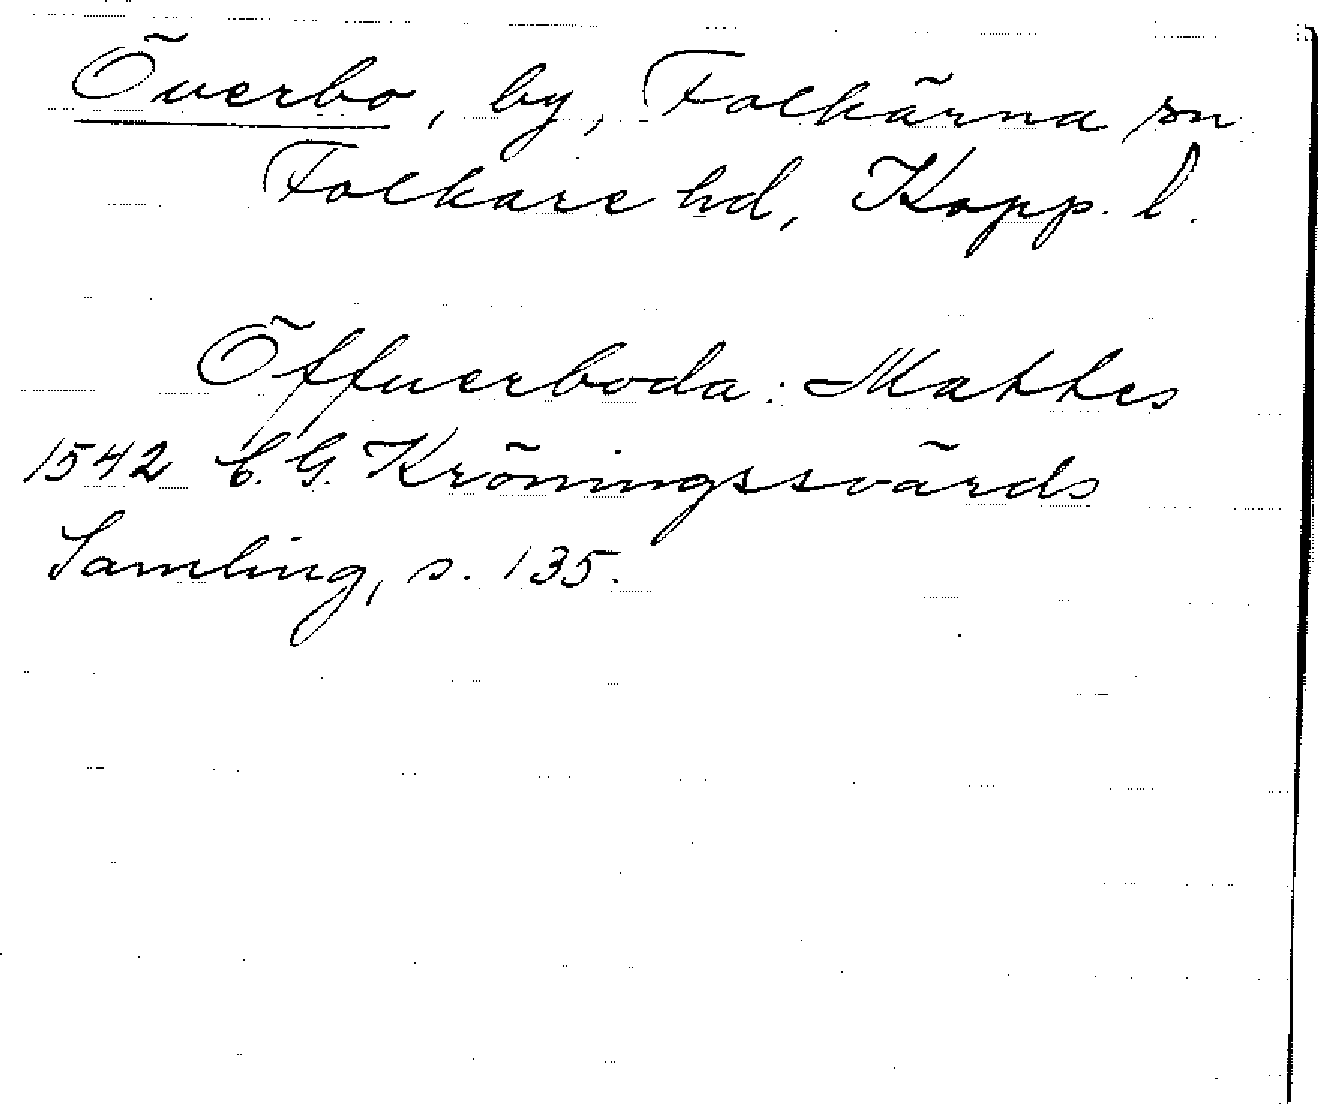 Överbo, by, Folkärna sn
Folkare hd, Kopp. l.
Öffuerboda: Mattes
1542 C. G. Kröningssvärds
Samling, s. 135.